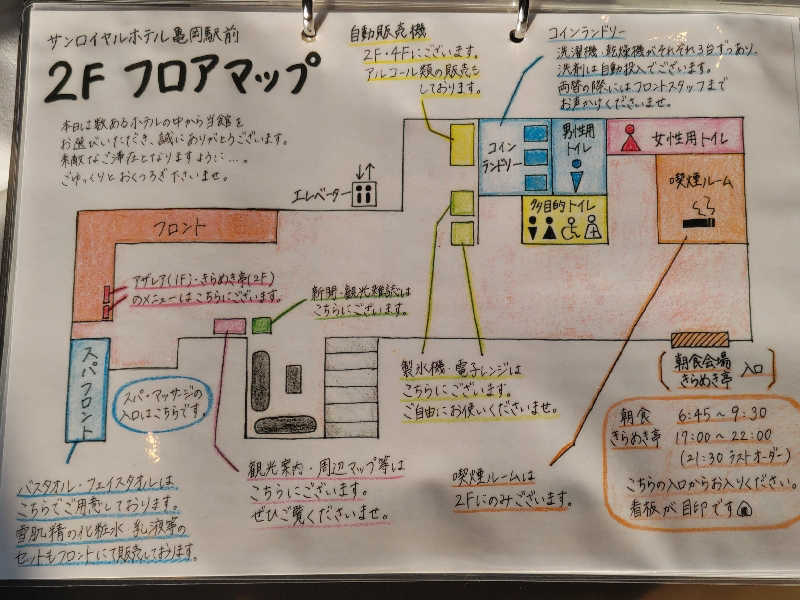 サンロイヤルホテル亀岡駅前
2F フロアマップ
本日は数あるホテルの中から当館を
お選びいただき、誠にありがとうございます。
素敵なご滞在となりますように…。
ごゆっくりとおくつろぎ下さいませ。
自動販売機
2F・4Fにございます。
アルコール類の販売も
しております。
コインランドリー
洗濯機・乾燥機がそれぞれ3台ずつあり、
洗剤は自動投入でございます。
両替の際にはフロントスタッフまで
お声かけくださいませ。
エレベーター
コイン
ランドリー
男性用
トイレ
女性用トイレ
多目的トイレ
喫煙ルーム
フロント
アザレア(1F)・きらめき亭(2F)
のメニューはこちらにございます。
新聞・観光雑誌は
こちらにございます。
スパフロント
スパ・マッサージの
入口はこちらです。
製氷機・電子レンジは
こちらにございます。
ご自由にお使いくださいませ。
朝食会場
きらめき亭
入口
朝食 6:45～9:30
きらめき亭 17:00～22:00
(21:30 ラストオーダー)
こちらの入口からお入りください。
看板が目印です
バスタオル・フェイスタオルは、
こちらでご用意しております。
雪肌精の化粧水・乳液等の
セットもフロントにて販売しております。
観光案内・周辺マップ等は
こちらにございます。
ぜひご覧くださいませ。
喫煙ルームは
2Fにのみございます。